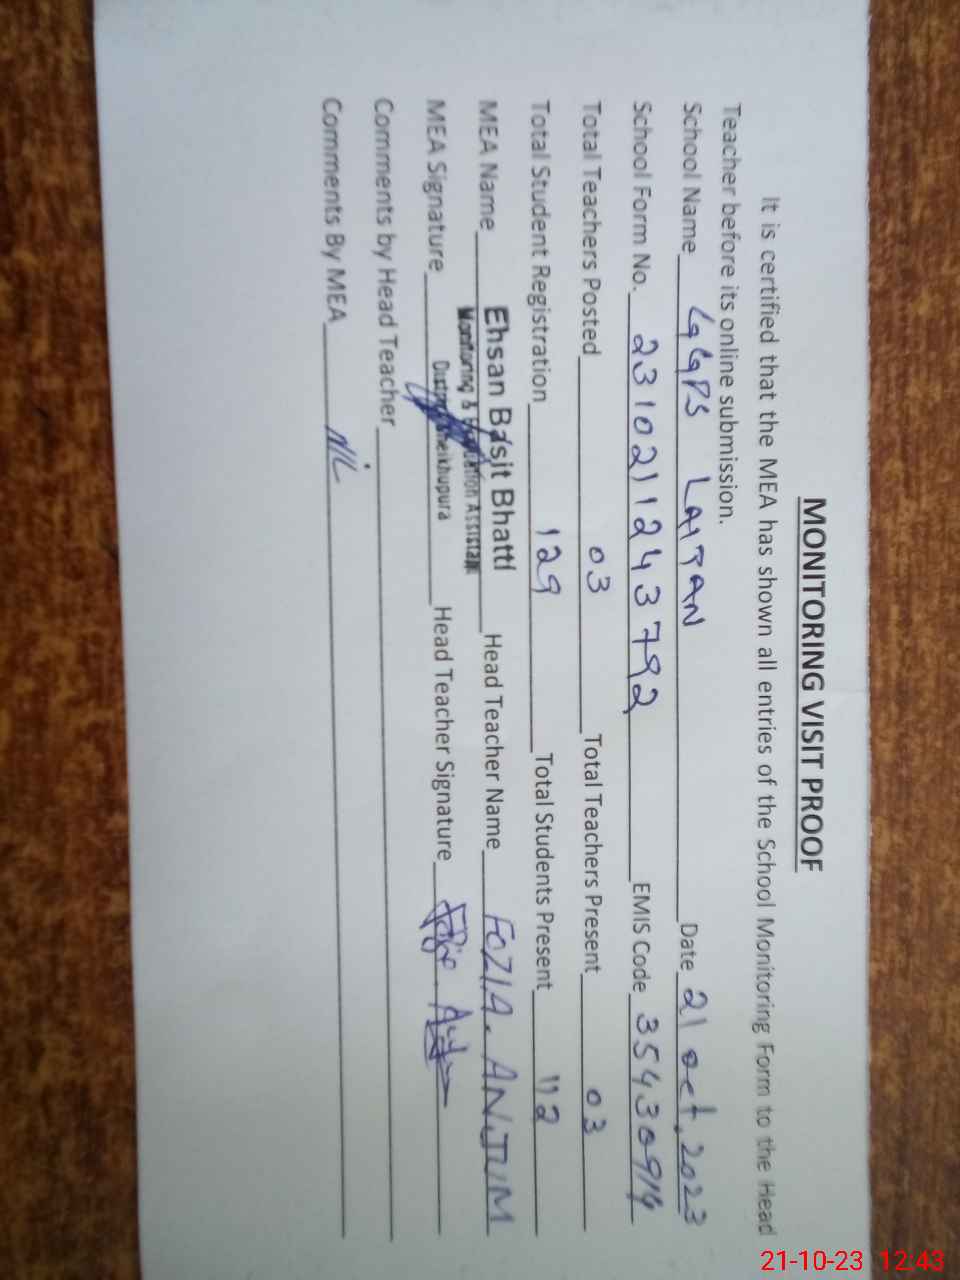 MONITORING VISIT PROOF
It is certified that the MEA has shown all entries of the School Monitoring Form to the Head
Teacher before its online submission.
School Name GGPS LALRAN Date 21 oct, 2023
School Form No. 23102112 43792 EMIS Code 35430914
Total Teachers Posted 03 Total Teachers Present 03
Total Student Registration 129 Total Students Present 112
MEA Name Ehsan Basit Bhatti Head Teacher Name FOZIA. ANJUM
Monitoring & Evaluation Assistant
District Sheikhupura
MEA Signature Head Teacher Signature
Comments by Head Teacher
Comments By MEA NIL
21-10-23 12:43